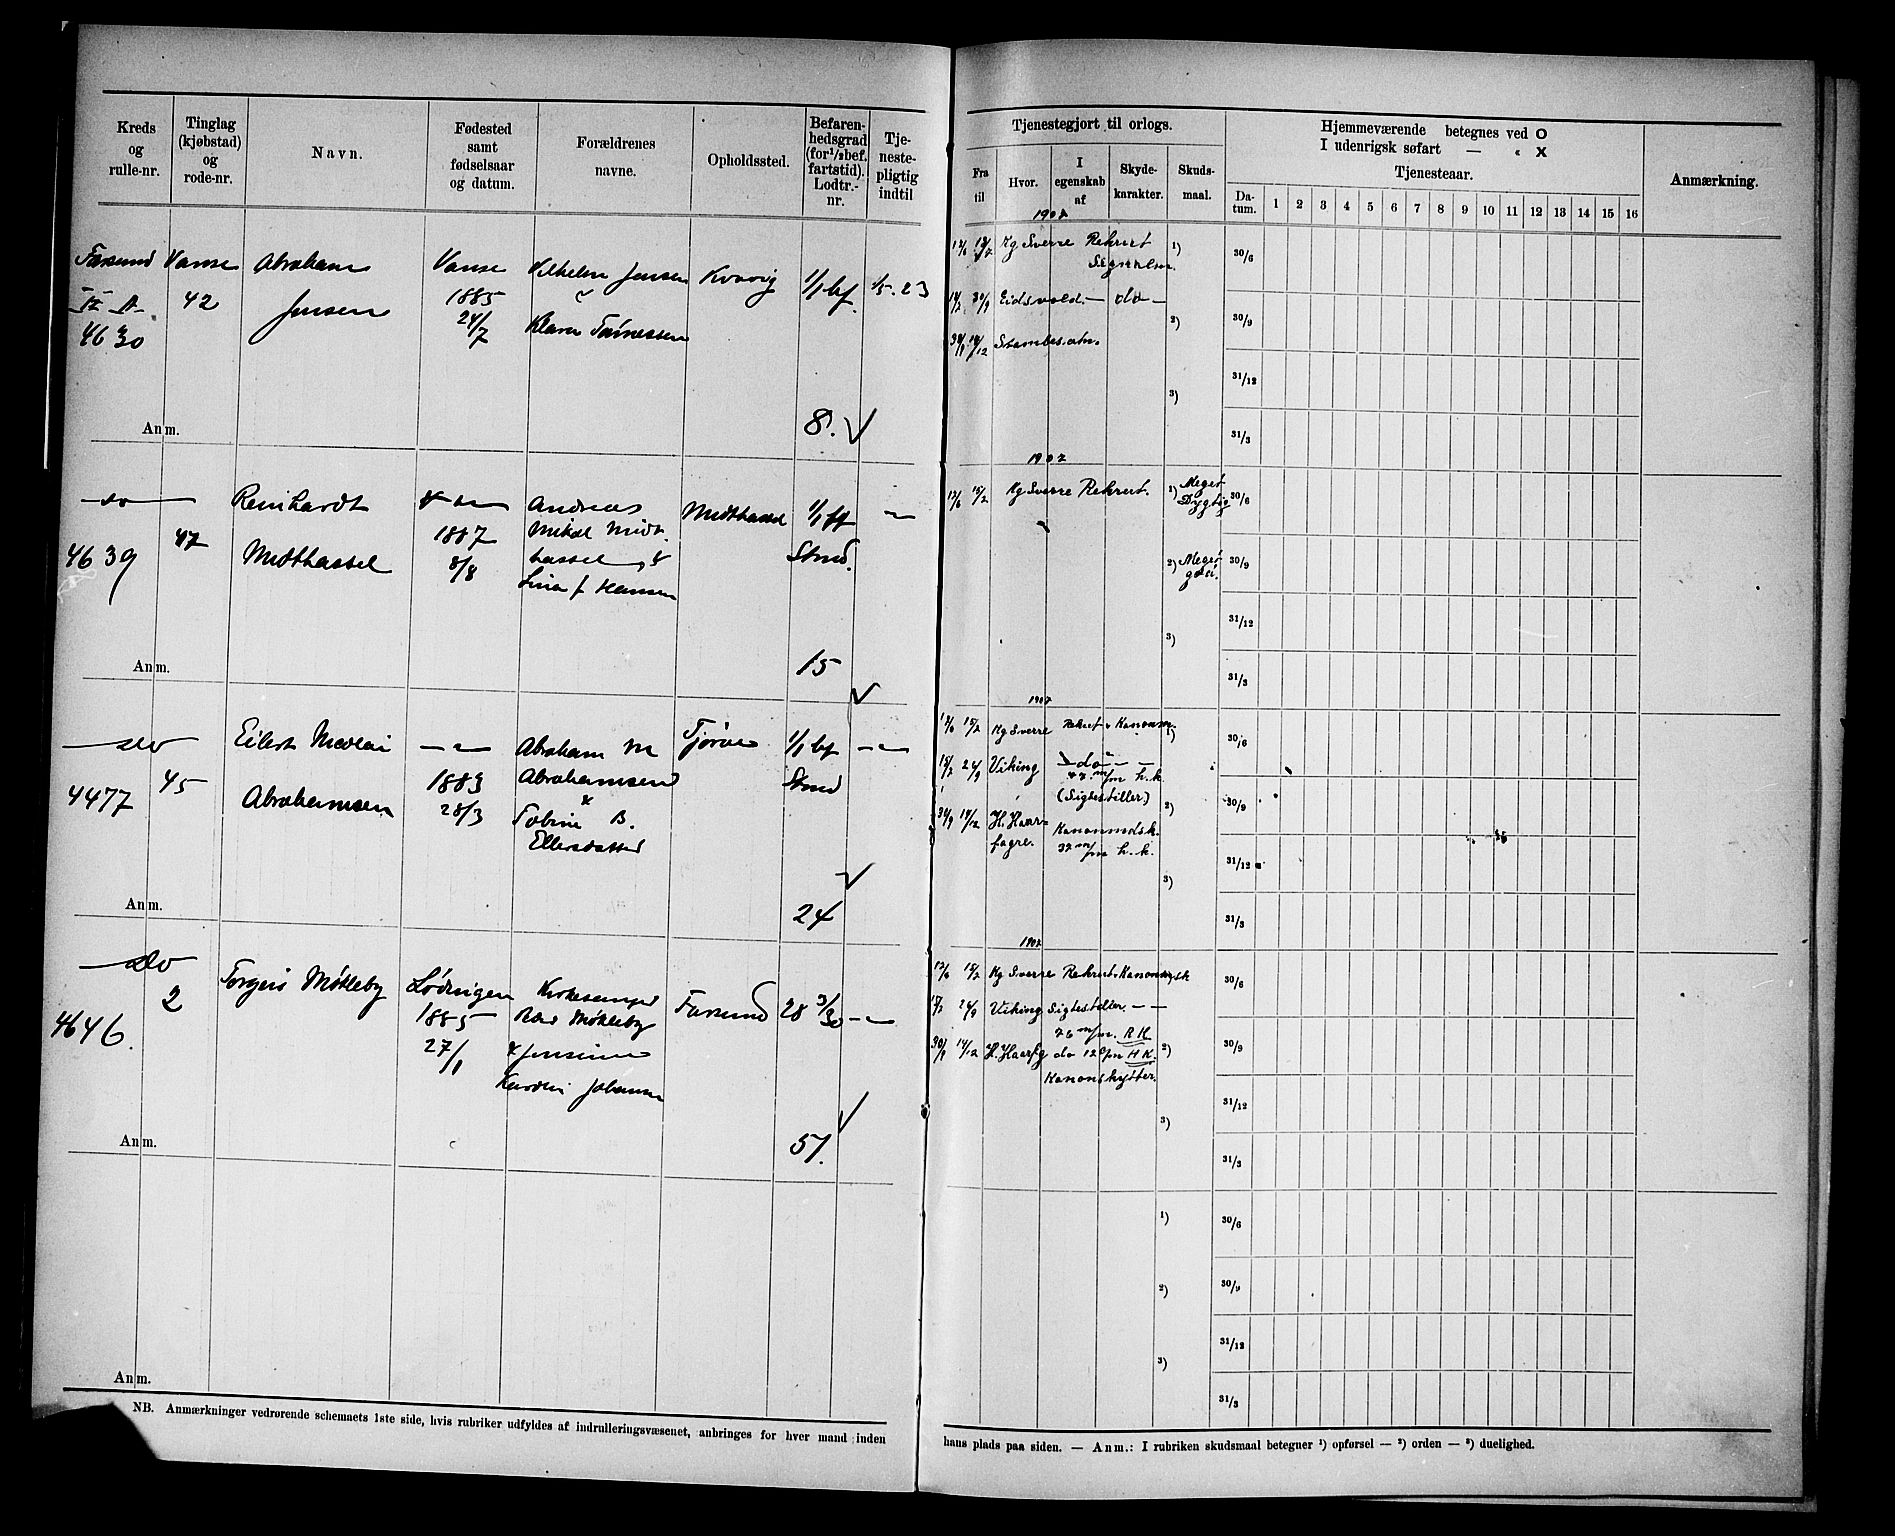 Kreds og rulle-nr.
Tinglag (kjøbstad) og rode-nr.
Navn.
Fødested samt fødselsaar og datum.
Forældrenes navne.
Opholdssted.
Befarenhedsgrad (for 1/2 bef. fartstid). Lodtr.-nr.
Tjenestepligtig indtil
Tjenestegjort til orlogs.
Fra til
Hvor.
I egenskab af
Skydekarakter.
Skudsmaal.
Hjemmeværende betegnes ved O
I udenrigsk søfart — „ X
Tjenesteaar.
Datum. 1 2 3 4 5 6 7 8 9 10 11 12 13 14 15 16
Anmærkning.
Farsund Vanse Abraham Vanse Vilhelm Jensen Kvavig 1/1 bf. 1/5. 23
42 Jensen 1885
24/7 Klara Tønnessen
4630
Anm. 8.
1907
12/6 Kg Sverre Rekrut 1) 30/6
Signalm.
Eidsvold — do — 2) 30/9
31/12
3)
31/3
— do — Reinhardt Andreas Midthassel 1/1 ff —
47 1887 Mikal Midt-
4639 Midthassel 8/8 hassel & Stmd.
Lina f Hansen
Anm. 15
1907
12/6 15/7 Kg Sverre Rekrut. 1) Meget Dygtig 30/6
2) Meget god. 30/9
31/12
3)
31/3
— do Eilert Nicolai — „ — Abraham M Tjørve 1/1 bf — „ —
45 1883 Abrahamsen Stmd
4477 Abrahamsen 28/3 &
Tobine B.
Anm. 24
1907
12/6 15/7 Kg Sverre Rekrut & Kanonm. 1) 30/6
15/7 24/9 Viking — do — —
47 m/m h.k.
(Sigtestiller) 2) 30/9
30/9 14/12 H. Haar-
fagre. Kanonmdsk.
37 m/m h.k. 31/12
3)
31/3
— do Torgeis Møkleby Lødingen Kirkesanger Farsund 28 3/30 — „ —
2 1885 Møkleby
4646. 27/1 & Jensine
Anm. 51.
1907
12/6 15/7 Kg Sverre Rekrut & Kanonmsk 30/6
15/7 24/9 Viking Sigtestiller — —
76 m/m. R K
30/9 14/12 H. Haarfg do 12 c/m H K. 2) 30/9
Kanonskytter.
31/12
3)
31/3
1) 30/6
2) 30/9
31/12
3)
31/3
Anm.
NB. Anmærkninger vedrørende schemaets 1ste side, hvis rubriker udfyldes af indrulleringsvæsenet, anbringes for hver mand inden
hans plads paa siden. — Anm.: I rubriken skudsmaal betegner 1) opførsel — 2) orden — 3) duelighed.